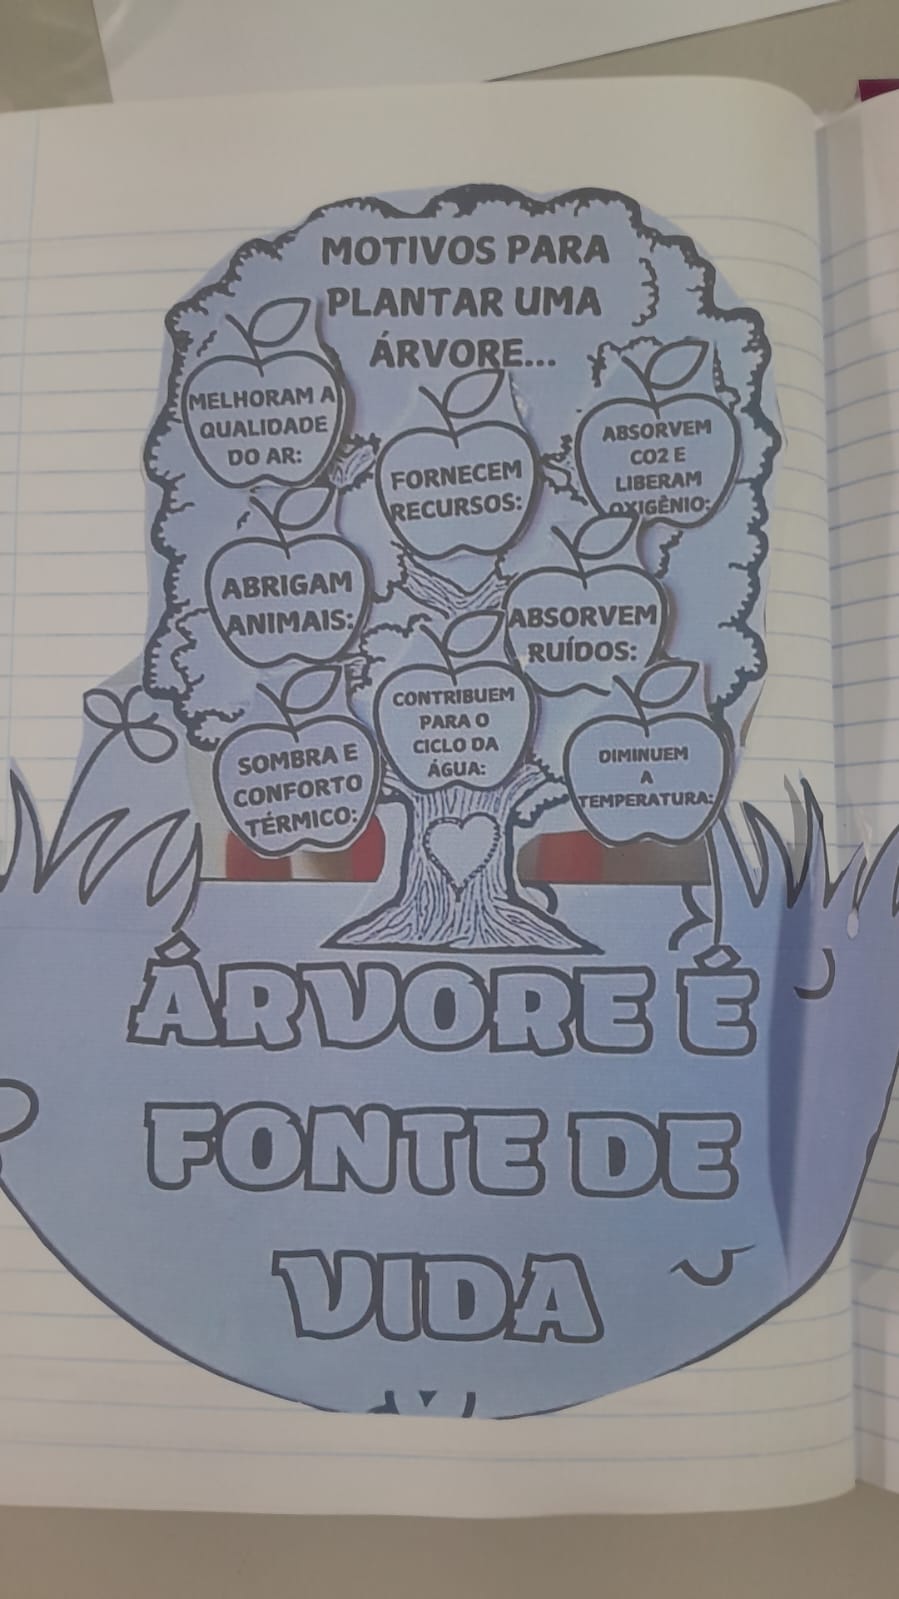 MOTIVOS PARA
PLANTAR UMA
ÁRVORE...
MELHORAM A
QUALIDADE
DO AR:
FORNECEM
RECURSOS:
ABSORVEM
CO2 E
LIBERAM
OXIGÊNIO:
ABRIGAM
ANIMAIS:
ABSORVEM
RUÍDOS:
SOMBRA E
CONFORTO
TÉRMICO:
CONTRIBUEM
PARA O
CICLO DA
ÁGUA:
DIMINUEM
A
TEMPERATURA:
ÁRVORE É
FONTE DE
VIDA